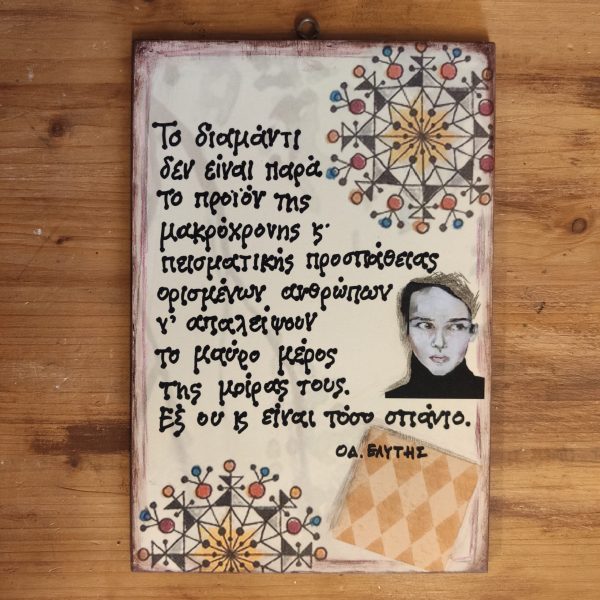 Το διαμάντι
δεν είναι παρά
το προϊόν της
μακρόχρονης κ'
πεισματικής προσπάθειας
ορισμένων ανθρώπων
ν' απαλείψουν
το μαύρο μέρος
της μοίρας τους.
Εξ ου κ είναι τόσο σπάνιο.
ΟΔ. ΕΛΥΤΗΣ